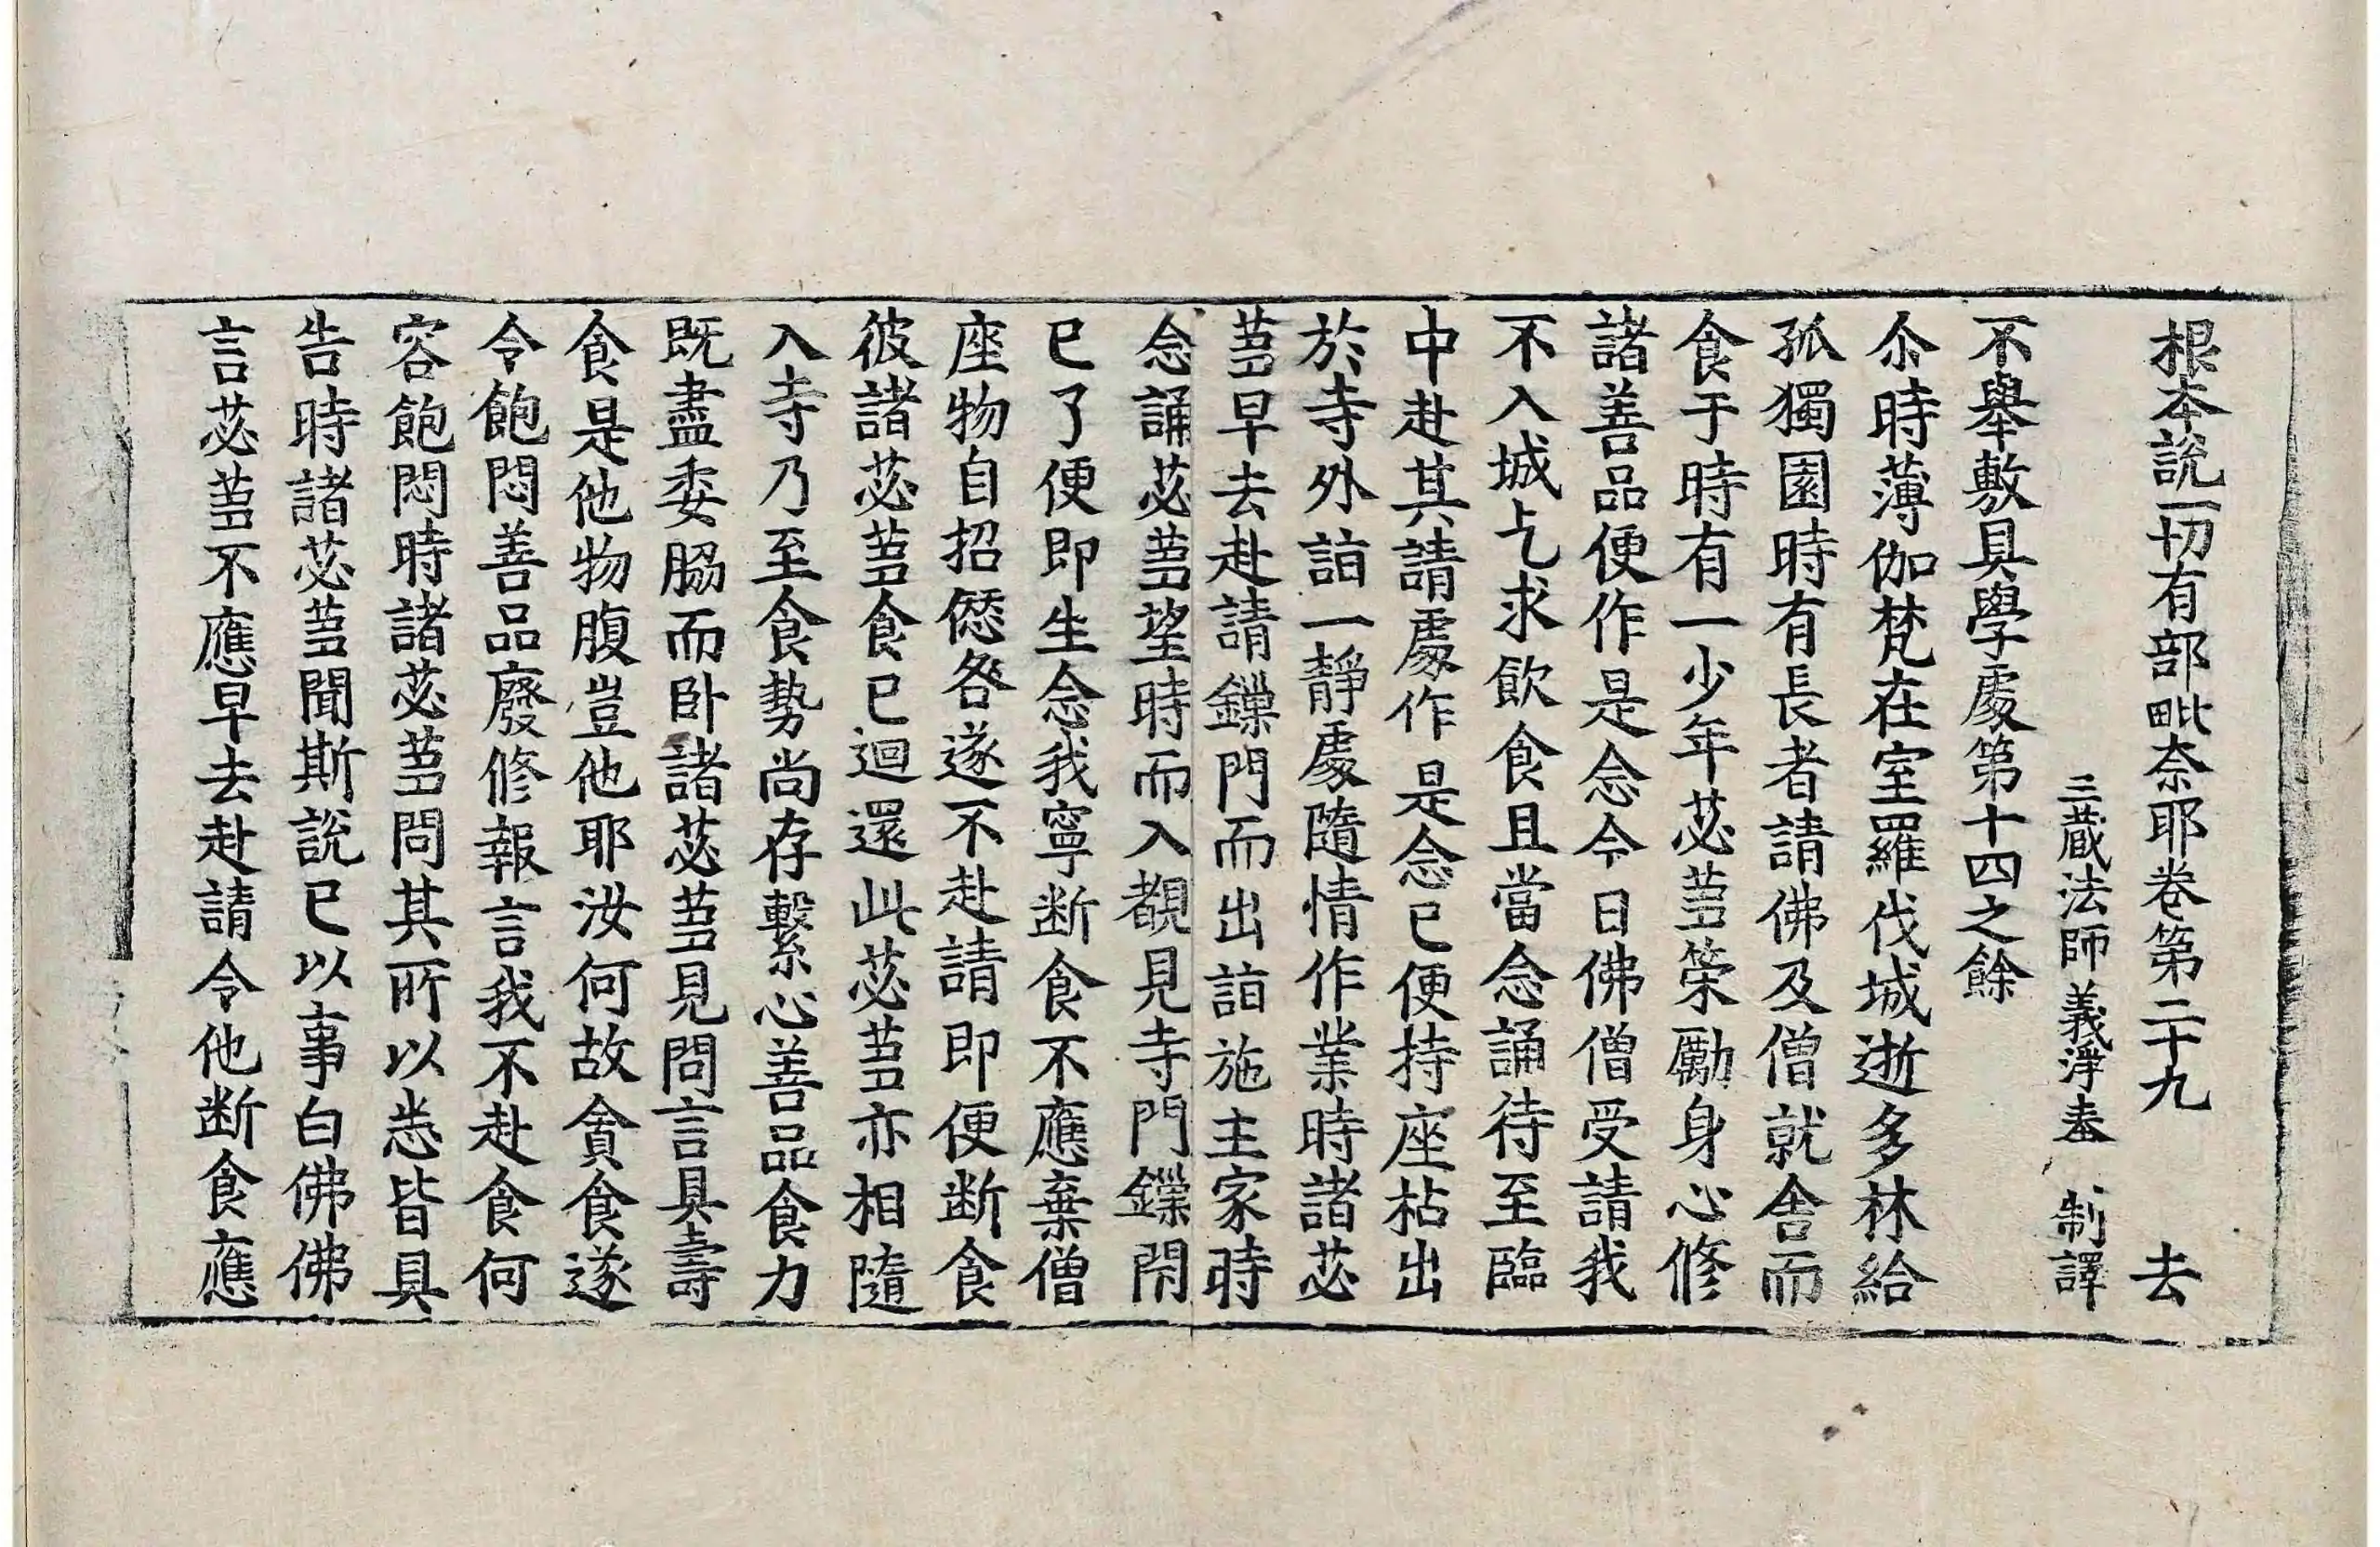 根本說一切有部毗奈耶卷第二十九　去
三藏法師義淨奉　制譯
不舉敷具學處第十四之餘
尒時薄伽梵在室羅伐城逝多林給
孤獨園時有長者請佛及僧就舍而
食于時有一少年苾蒭策勵身心修
諸善品便作是念今日佛僧受請我
不入城乞求飲食且當念誦待至臨
中赴其請處作是念已便持座枯出
於寺外詣一靜處隨情作業時諸苾
蒭早去赴請鏁門而出詣施主家時
念誦苾蒭望時而入覩見寺門鏁閇
已了便即生念我寧断食不應棄僧
座物自招愆咎遂不赴請即便断食
彼諸苾蒭食已迴還此苾蒭亦相隨
入寺乃至食勢尚存繫心善品食力
既盡委脇而卧諸苾蒭見問言具壽
食是他物腹豈他耶汝何故貪食遂
令飽悶善品廢修報言我不赴食何
容飽悶時諸苾蒭問其所以悉皆具
告時諸苾蒭聞斯說已以事白佛佛
言苾蒭不應早去赴請令他断食應